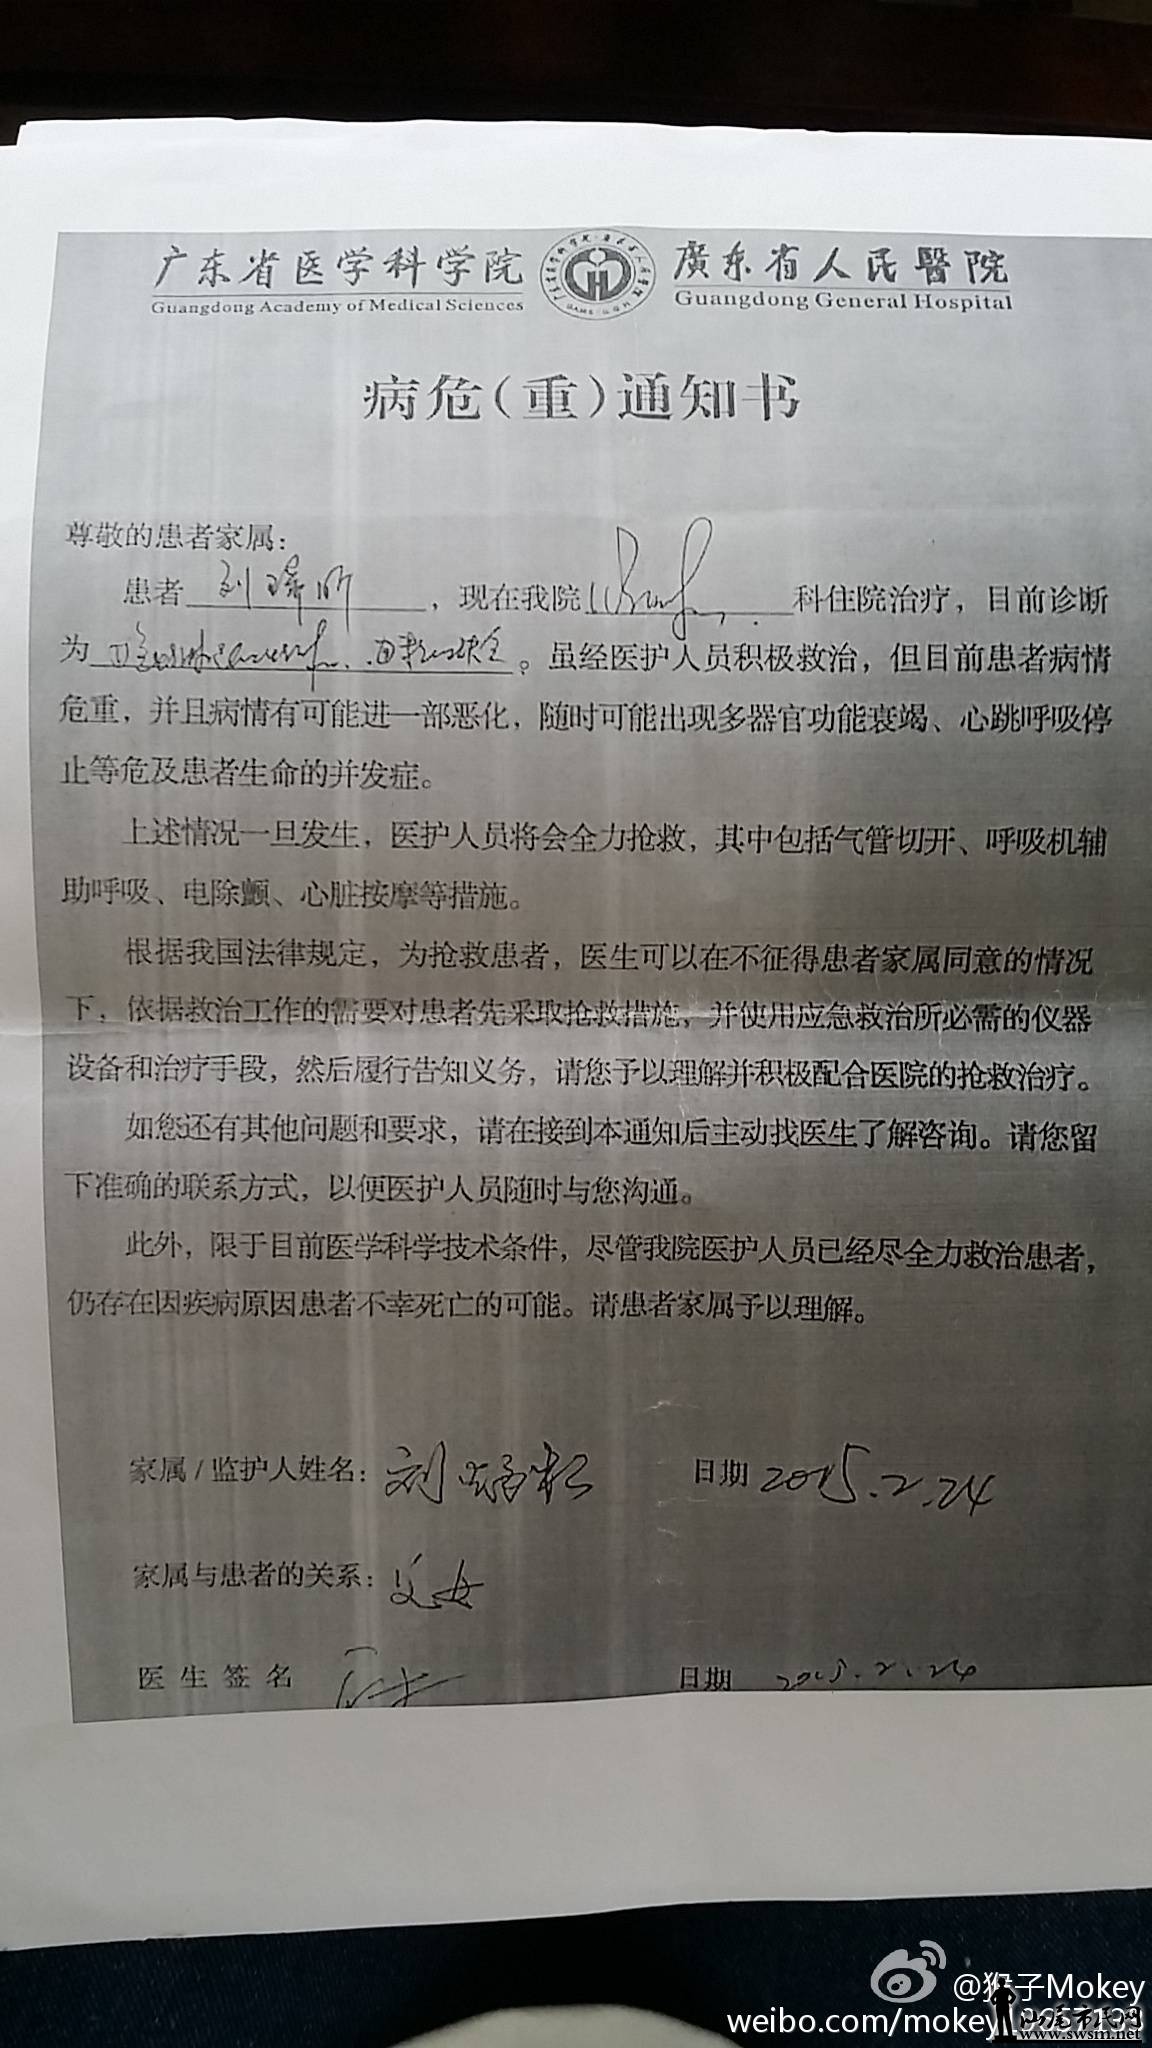 广东省医学科学院 廣东省人民醫院
Guangdong Academy of Medical Sciences Guangdong General Hospital
病危（重）通知书
尊敬的患者家属：
患者 刘 ，现在我院 科住院治疗，目前诊断
为 。虽经医护人员积极救治，但目前患者病情
危重，并且病情有可能进一部恶化，随时可能出现多器官功能衰竭、心跳呼吸停
止等危及患者生命的并发症。
上述情况一旦发生，医护人员将会全力抢救，其中包括气管切开、呼吸机辅
助呼吸、电除颤、心脏按摩等措施。
根据我国法律规定，为抢救患者，医生可以在不征得患者家属同意的情况
下，依据救治工作的需要对患者先采取抢救措施，并使用应急救治所必需的仪器
设备和治疗手段，然后履行告知义务，请您予以理解并积极配合医院的抢救治疗。
如您还有其他问题和要求，请在接到本通知后主动找医生了解咨询。请您留
下准确的联系方式，以便医护人员随时与您沟通。
此外，限于目前医学科学技术条件，尽管我院医护人员已经尽全力救治患者，
仍存在因疾病原因患者不幸死亡的可能。请患者家属予以理解。
家属/监护人姓名：刘 松 日期 2015.2.24
家属与患者的关系：父女
医生签名 日期 2015.2.24
@猴子Mokey
weibo.com/mokey
汕尾市民网
www.swsm.net